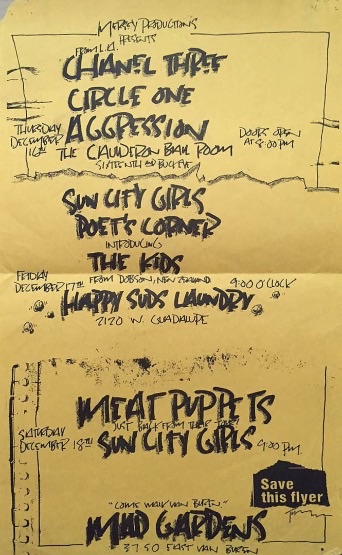 MERSEY PRODUCTIONS
PRESENTS
FROM L.A.
CHANEL THREE
CIRCLE ONE
AGGRESSION
THURSDAY
DECEMBER
16TH
DOORS OPEN
AT 8:00 PM
THE CALDERON BALL ROOM
SIXTEENTH AND BUCKEYE
SUN CITY GIRLS
POET'S CORNER
INTRODUCING
THE KIDS
FROM DOBSON, NEW ZEALAND
FRIDAY
DECEMBER 17TH
9:00 O'CLOCK
HAPPY SUDS LAUNDRY
2120 W. GUADALUPE
MEAT PUPPETS
JUST BACK FROM THEIR TOUR
SATURDAY
DECEMBER 18TH
SUN CITY GIRLS
9:00 P.M.
Save
this flyer
"COME WALK VAN BUREN"
MAD GARDENS
3750 EAST VAN BUREN